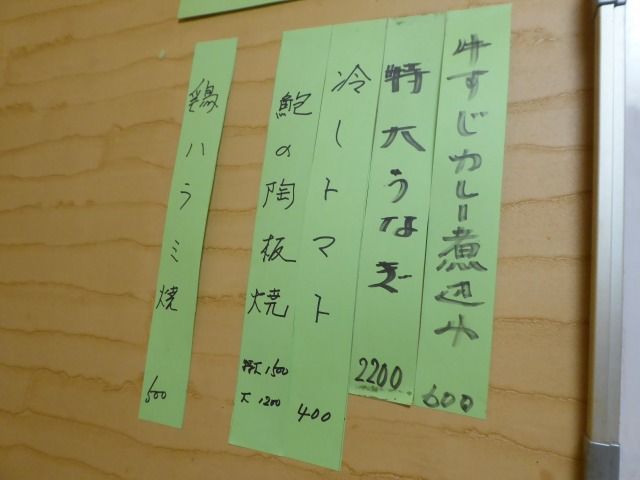 牛すじカレー煮込み
600
特大うなぎ
2200
冷しトマト
400
鮑の陶板焼
特大 1500
大 1200
鶏ハラミ焼
500